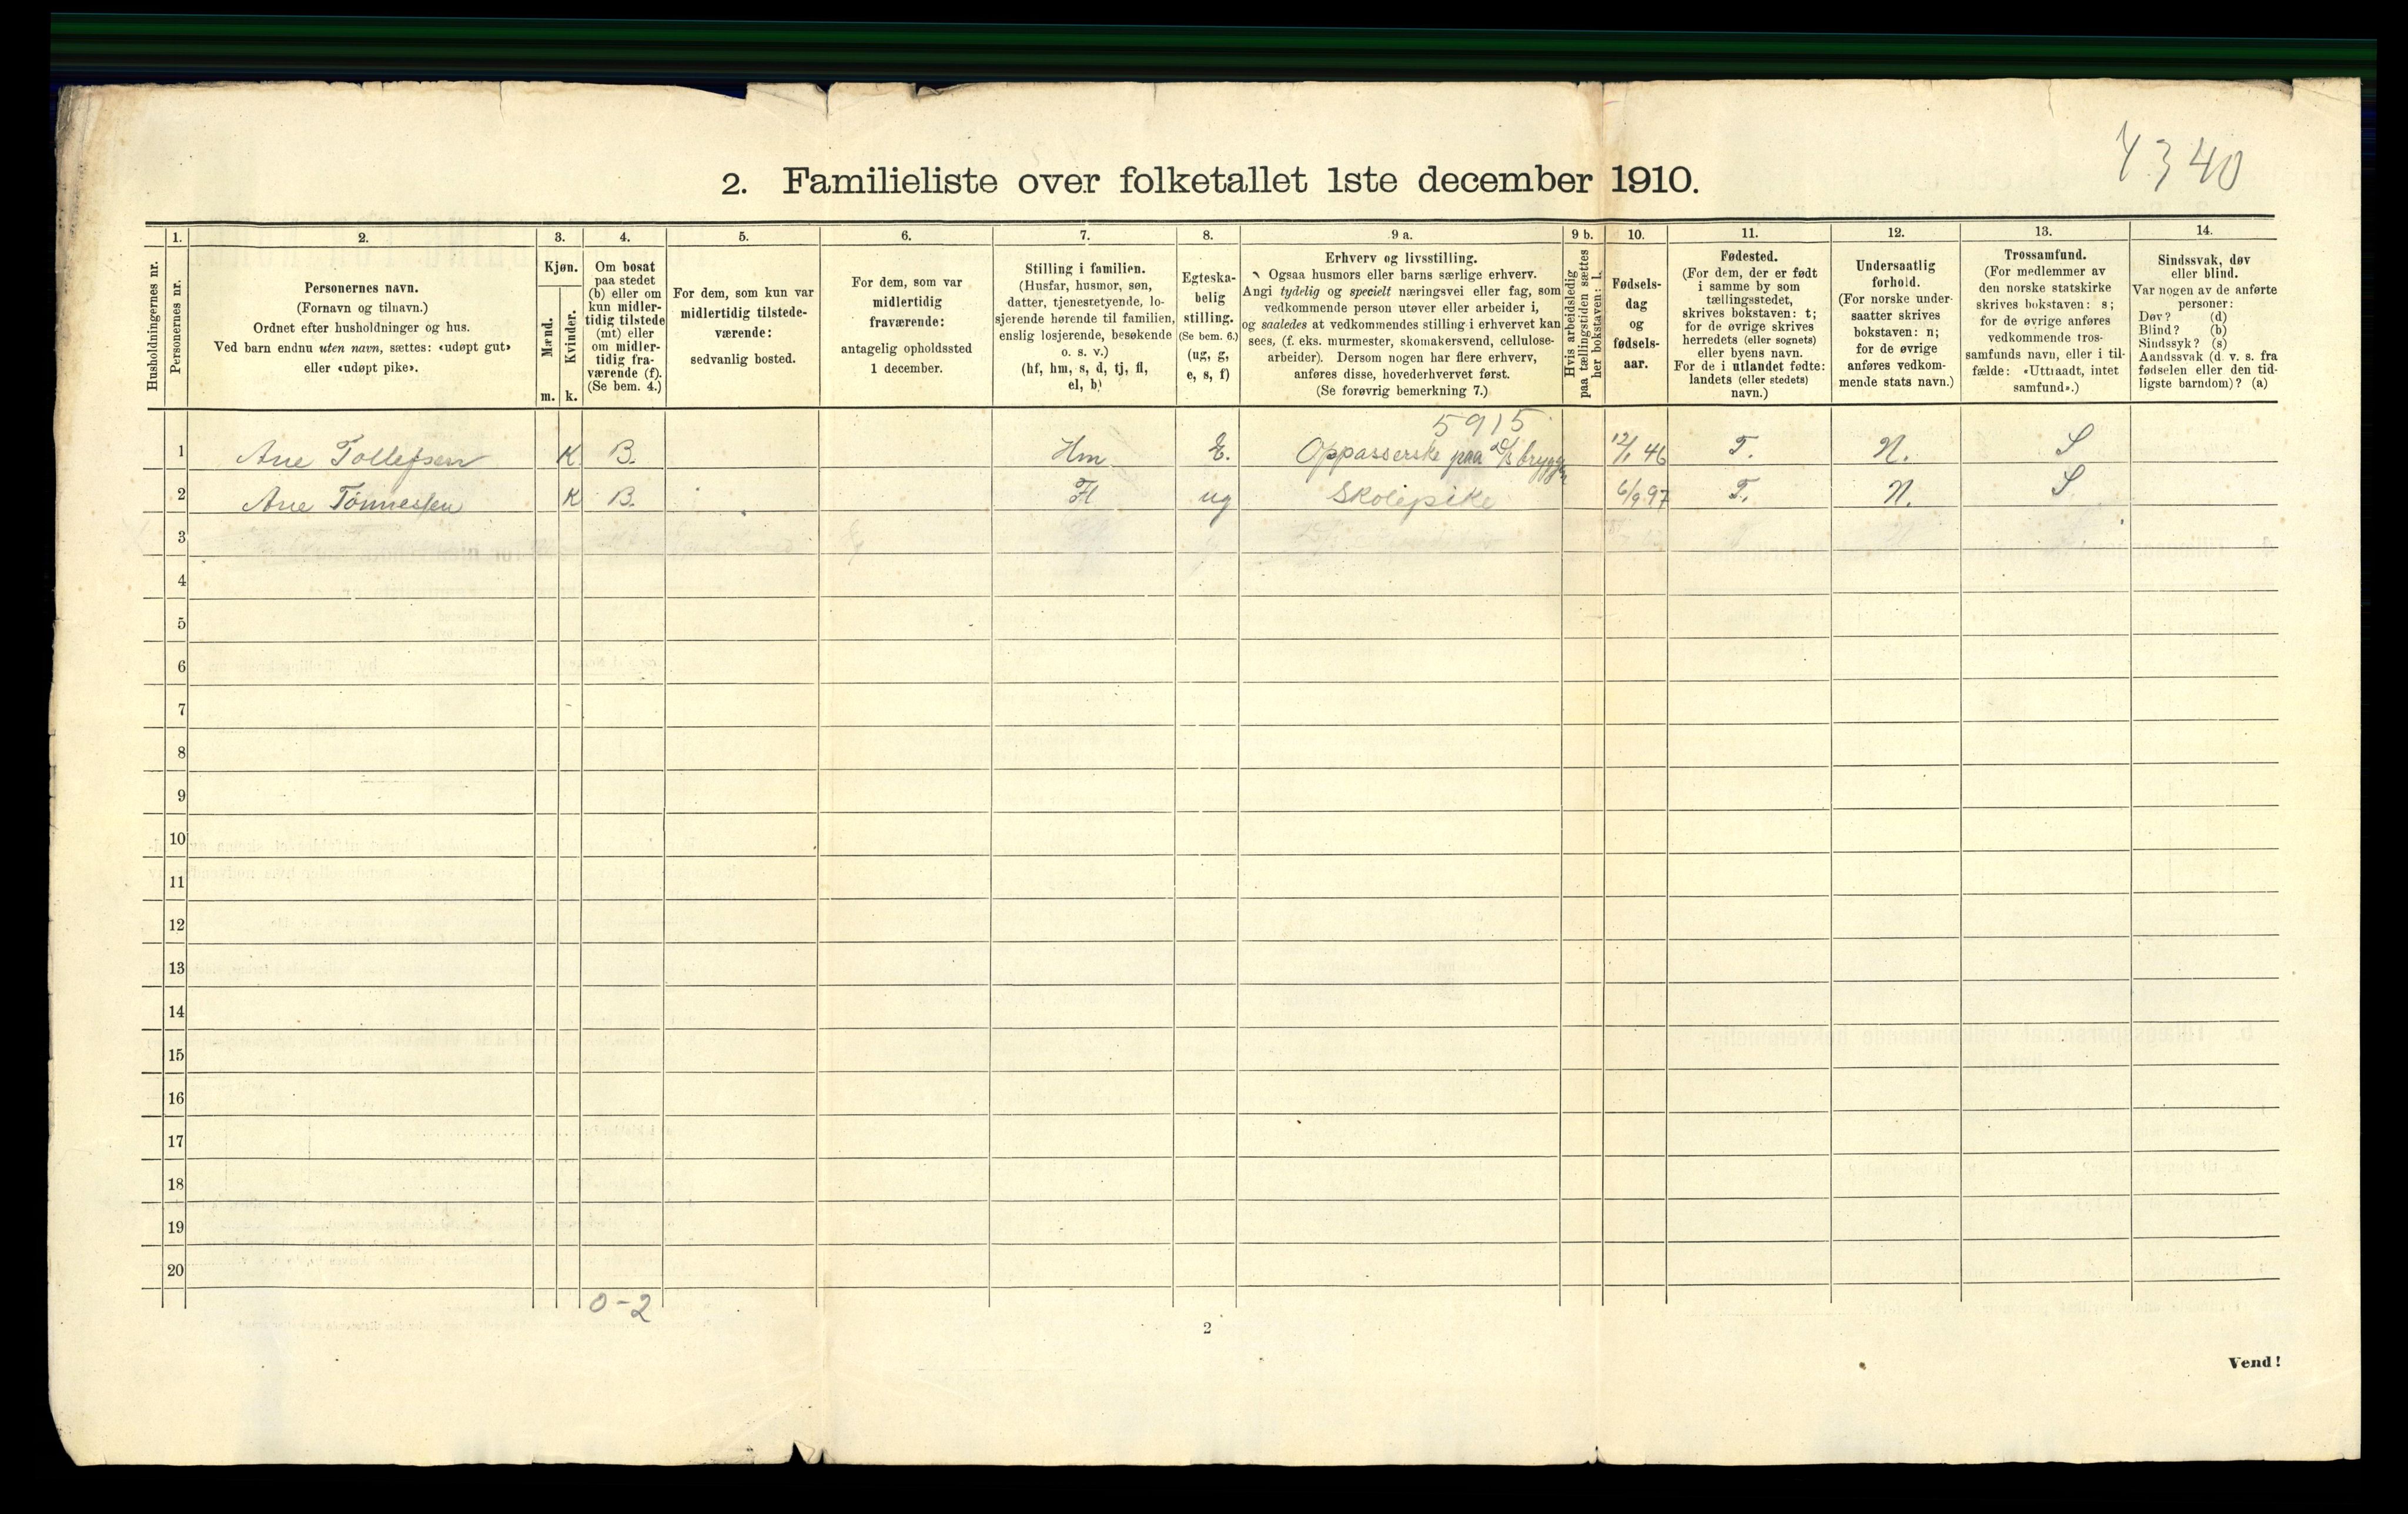 7340
2. Familieliste over folketallet 1ste december 1910.
Husholdningernes nr.
1.
Personernes nr.
2.
Personernes navn.
(Fornavn og tilnavn.)
Ordnet efter husholdninger og hus.
Ved barn endnu uten navn, sættes: «udøpt gut»
eller «udøpt pike».
3.
Kjøn.
Mænd.
Kvinder.
m. k.
4.
Om bosat
paa stedet
(b) eller om
kun midler-
tidig tilstede
(mt) eller
om midler-
tidig fra-
værende (f).
(Se bem. 4.)
5.
For dem, som kun var
midlertidig tilstede-
værende:
sedvanlig bosted.
6.
For dem, som var
midlertidig
fraværende:
antagelig opholdssted
1 december.
7.
Stilling i familien.
(Husfar, husmor, søn,
datter, tjenestetyende, lo-
sjerende hørende til familien,
enslig losjerende, besøkende
o. s. v.)
(hf, hm, s, d, tj, fl,
el, b)
8.
Egteska-
belig
stilling.
(Se bem. 6.)
(ug, g,
e, s, f)
9 a.
Erhverv og livsstilling.
Ogsaa husmors eller barns særlige erhverv.
Angi tydelig og specielt næringsvei eller fag, som
vedkommende person utøver eller arbeider i,
og saaledes at vedkommendes stilling i erhvervet kan
sees, (f. eks. murmester, skomakersvend, cellulose-
arbeider). Dersom nogen har flere erhverv,
anføres disse, hovederhvervet først.
(Se forøvrig bemerkning 7.)
9 b.
Hvis arbeidsledig
paa tællingstiden sættes
her bokstaven: l.
10.
Fødsels-
dag
og
fødsels-
aar.
11.
Fødested.
(For dem, der er født
i samme by som
tællingsstedet,
skrives bokstaven: t;
for de øvrige skrives
herredets (eller sognets)
eller byens navn.
For de i utlandet fødte:
landets (eller stedets)
navn.)
12.
Undersaatlig
forhold.
(For norske under-
saatter skrives
bokstaven: n;
for de øvrige
anføres vedkom-
mende stats navn.)
13.
Trossamfund.
(For medlemmer av
den norske statskirke
skrives bokstaven: s;
for de øvrige anføres
vedkommende tros-
samfunds navn, eller i til-
fælde: «Uttraadt, intet
samfund».)
14.
Sindssvak, døv
eller blind.
Var nogen av de anførte
personer:
Døv? (d)
Blind? (b)
Sindssyk? (s)
Aandssvak (d. v. s. fra
fødselen eller den tid-
ligste barndom)? (a)
5915
1 Ane Tollefsen K B. Hm E. Oppasserske paa d/s bryggen 12/1 46 T. N. S
2 Ane Tønnessen K B. Fl ug Skolepike 6/9 97 T. N. S
3
4
5
6
7
8
9
10
11
12
13
14
15
16
17
18
19
20
0-2
2
Vend!